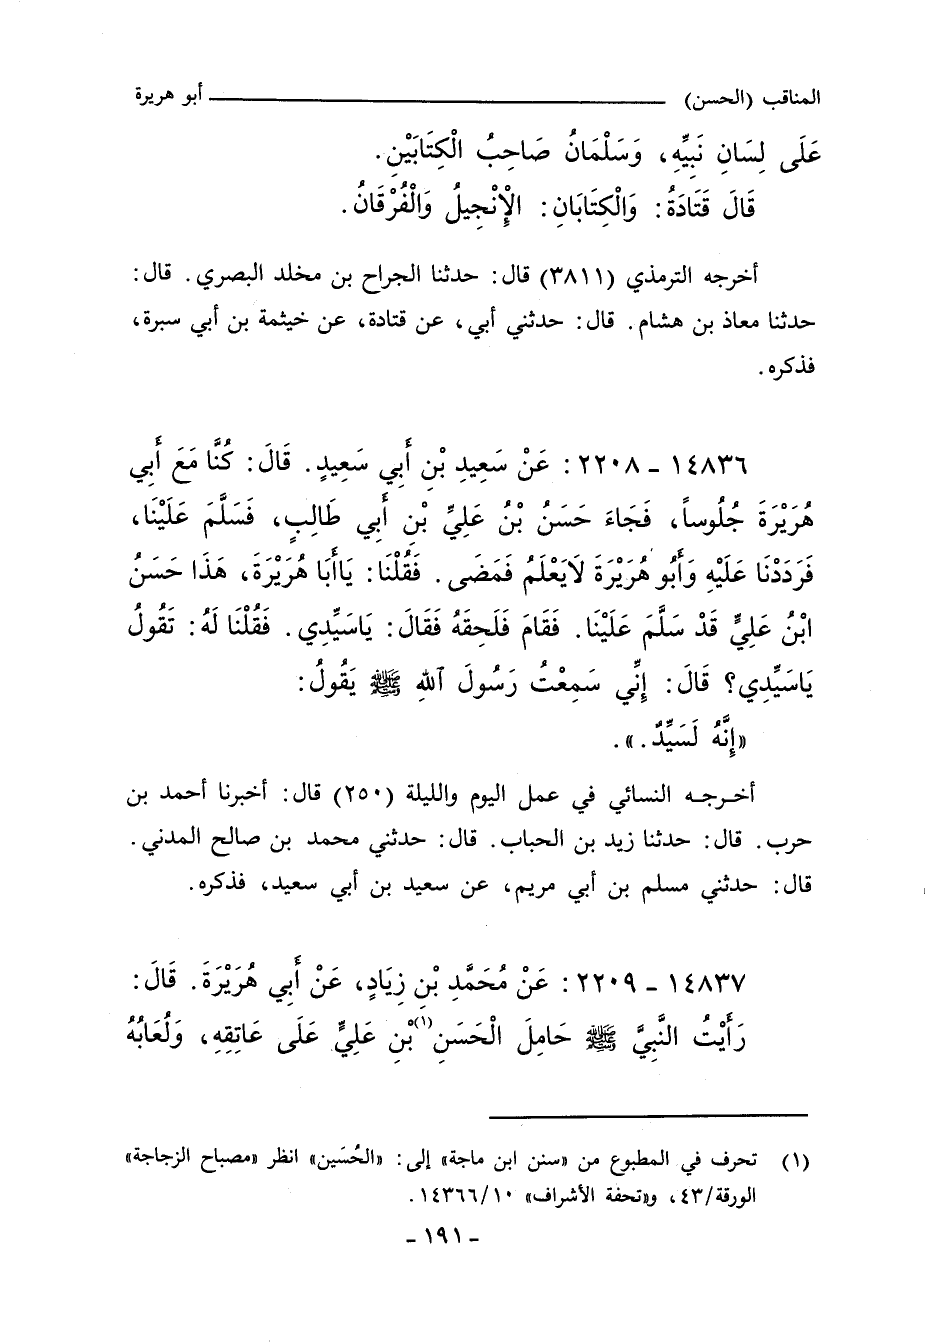 المناقب (الحسن) ــــــــــــــــــ أبو هريرة
عَلَى لِسَانِ نَبِيِّهِ، وَسَلْمَانُ صَاحِبُ الْكِتَابَيْنِ.
قَالَ قَتَادَةُ: وَالْكِتَابَانِ: الْإِنْجِيلُ وَالْفُرْقَانُ.
أخرجه الترمذي (٣٨١١) قال: حدثنا الجراح بن مخلد البصري. قال:
حدثنا معاذ بن هشام. قال: حدثني أبي، عن قتادة، عن خيثمة بن أبي سبرة،
فذكره.
١٤٨٣٦ - ٢٢٠٨: عَنْ سَعِيدِ بْنِ أَبِي سَعِيدٍ. قَالَ: كُنَّا مَعَ أَبِي
هُرَيْرَةَ جُلُوساً، فَجَاءَ حَسَنُ بْنُ عَلِيِّ بْنِ أَبِي طَالِبٍ، فَسَلَّمَ عَلَيْنَا،
فَرَدَدْنَا عَلَيْهِ وَأَبُو هُرَيْرَةَ لَايَعْلَمُ فَمَضَى. فَقُلْنَا: يَاأَبَا هُرَيْرَةَ، هَذَا حَسَنُ
ابْنُ عَلِيٍّ قَدْ سَلَّمَ عَلَيْنَا. فَقَامَ فَلَحِقَهُ فَقَالَ: يَاسَيِّدِي. فَقُلْنَا لَهُ: تَقُولُ
يَاسَيِّدِي؟ قَالَ: إِنِّي سَمِعْتُ رَسُولَ ٱللهِ ﷺ يَقُولُ:
«إِنَّهُ لَسَيِّدٌ.».
أخـرجـه النسائي في عمل اليوم والليلة (٢٥٠) قال: أخبرنا أحمد بن
حرب. قال: حدثنا زيد بن الحباب. قال: حدثني محمد بن صالح المدني.
قال: حدثني مسلم بن أبي مريم، عن سعيد بن أبي سعيد، فذكره.
١٤٨٣٧ - ٢٢٠٩: عَنْ مُحَمَّدِ بْنِ زِيَادٍ، عَنْ أَبِي هُرَيْرَةَ. قَالَ:
رَأَيْتُ النَّبِيَّ ﷺ حَامِلَ الْحَسَنِ(١) بْنِ عَلِيٍّ عَلَى عَاتِقِهِ، وَلُعَابُهُ
(١) تحرف في المطبوع من «سنن ابن ماجة» إلى: «الحُسَين» انظر «مصباح الزجاجة»
الورقة/٤٣، و«تحفة الأشراف» ١٤٣٦٦/١٠.
- ١٩١ -